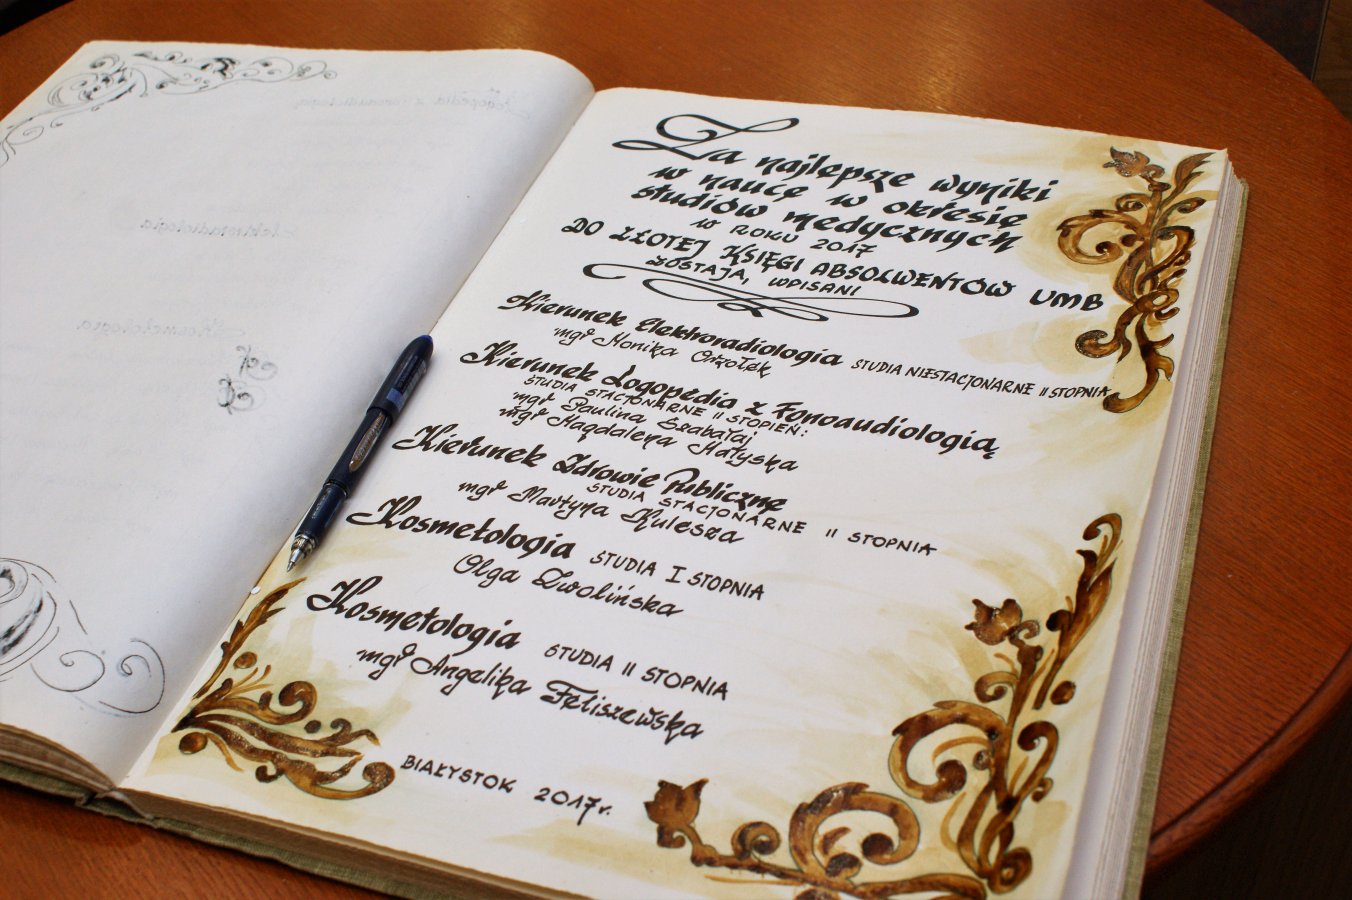 Za najlepsze wyniki
w naucę w okresię
studiów medycznych
w ROKU 2017
DO ZŁOTEJ KSIĘGI ABSOLWENTÓW UMB
ZOSTAJĄ WPISANI
Kierunek Elektroradiologia STUDIA NIESTACJONARNE II STOPNIA
mgr Monika Orzołek
Kierunek Logopedia z Fonoaudiologią
STUDIA STACJONARNE II STOPIEŃ:
mgr Paulina Szabałaj
mgr Magdalena Hałyska
Kierunek Zdrowie Publicznę
STUDIA STACJONARNE II STOPNIA
mgr Martyna Kulesza
Kosmetologia STUDIA I STOPNIA
Olga Zwolińska
Kosmetologia STUDIA II STOPNIA
mgr Angelika Feliszewska
BIAŁYSTOK 2017r.